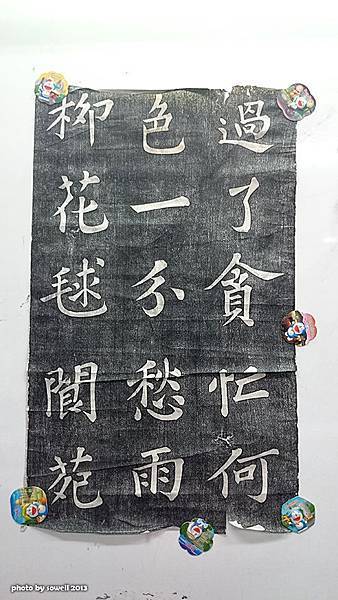 過了貪忙何
色一分愁雨
柳花毬閬苑
photo by sowell 2013